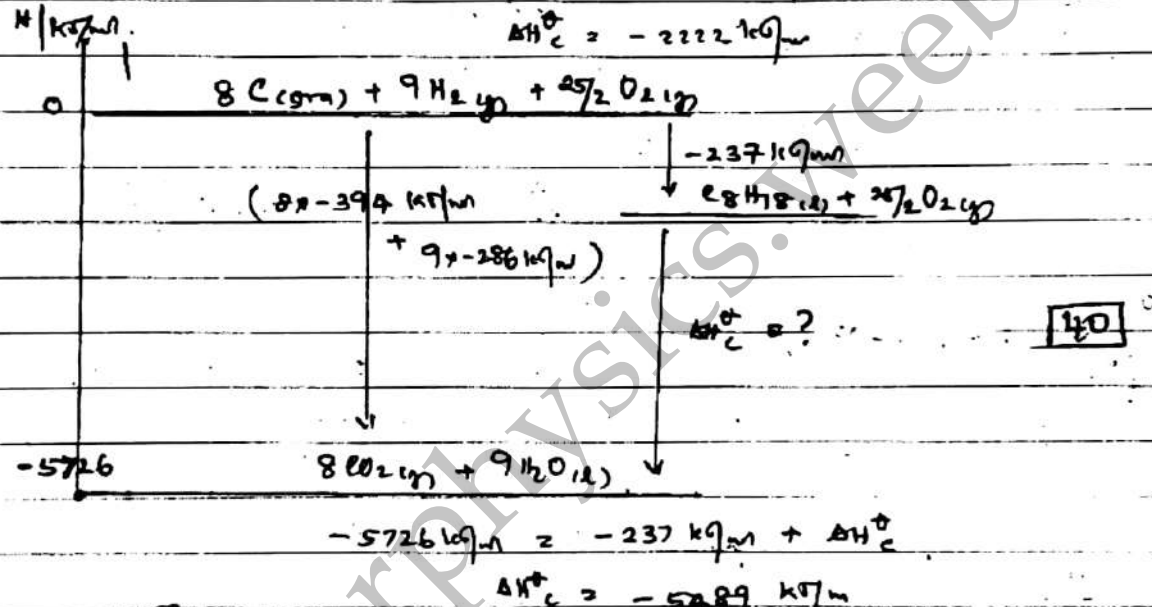 H/kJ/mol.
ΔH°c = -2222 kJ/mol
0 8 C(gra) + 9 H2 (g) + 25/2 O2 (g)
-237 kJ/mol
(8x-394 kJ/mol
C8H18(l) + 25/2 O2(g)
+ 9x-286 kJ/mol)
ΔH°c = ?
40
-5726 8 CO2 (g) + 9 H2O (l)
-5726 kJ/mol = -237 kJ/mol + ΔH°c
ΔH°c = -5489 kJ/m
rphysics.weeb